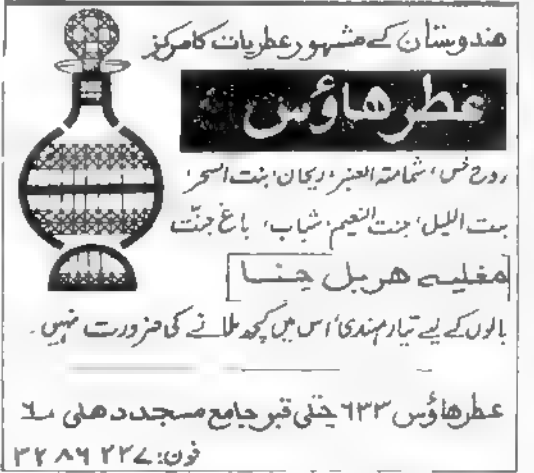 هندوستان کے مشہور عطریات کا مرکز
عطر هاؤس
روح خس، شمامتہ العنبر، ریحان، بنت السحر،
بنت اللیل، جنت النعیم، شباب، باغ جنّت
مغلیہ هربل حنا
بالوں کے لیے تیار مہندی، اس میں کچھ ملانے کی ضرورت نہیں۔
عطر هاؤس ۶۳۳ چتلی قبر جامع مسجد دهلی ۶
فون: ۳۲۸۶۲۳۷